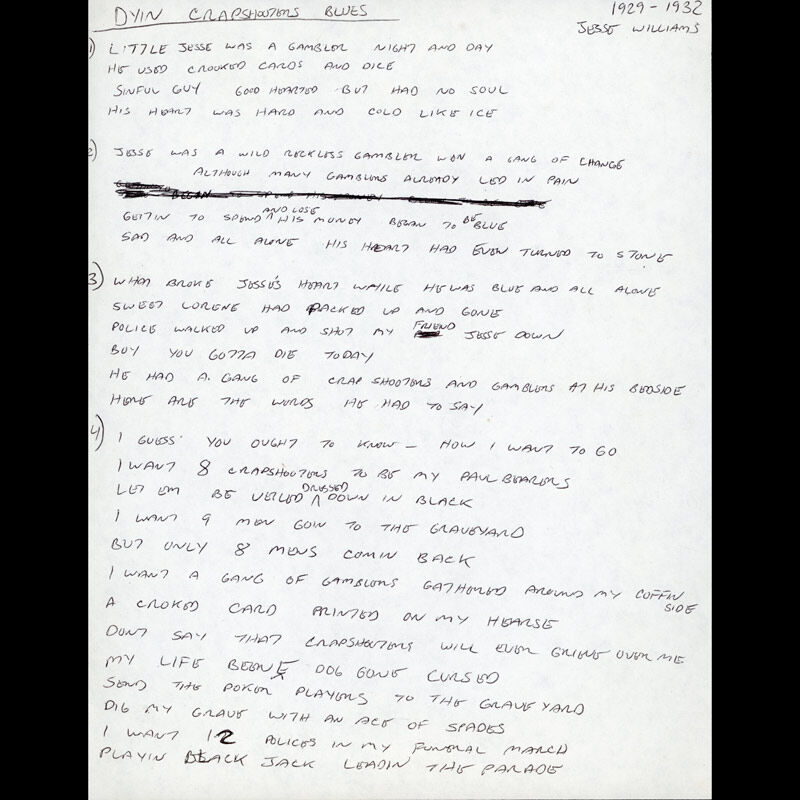 DYIN CRAPSHOOTERS BLUES
1929-1932
JESSE WILLIAMS
1) LITTLE JESSE WAS A GAMBLER NIGHT AND DAY
HE USED CROOKED CARDS AND DICE
SINFUL GUY GOOD HEARTED BUT HAD NO SOUL
HIS HEART WAS HARD AND COLD LIKE ICE
2) JESSE WAS A WILD RECKLESS GAMBLER WON A GANG OF CHANGE
ALTHOUGH MANY GAMBLERS ALREADY LED IN PAIN
BEGAN TO SPEND HIS MONEY
GETTIN TO SPEND AND LOSE HIS MONEY BEGAN TO BE BLUE
SAD AND ALL ALONE HIS HEART HAD EVEN TURNED TO STONE
3) WHAT BROKE JESSE'S HEART WHILE HE WAS BLUE AND ALL ALONE
SWEET LORENE HAD PACKED UP AND GONE
POLICE WALKED UP AND SHOT MY FRIEND JESSE DOWN
BOY YOU GOTTA DIE TODAY
HE HAD A GANG OF CRAP SHOOTERS AND GAMBLERS AT HIS BEDSIDE
HERE ARE THE WORDS HE HAD TO SAY
4) I GUESS YOU OUGHT TO KNOW - HOW I WANT TO GO
I WANT 8 CRAPSHOOTERS TO BE MY PAULBEARERS
LET EM BE VEILED DRESSED DOWN IN BLACK
I WANT 9 MEN GOIN TO THE GRAVEYARD
BUT ONLY 8 MENS COMIN BACK
I WANT A GANG OF GAMBLERS GATHERED AROUND MY COFFIN
SIDE
A CROKED CARD PRINTED ON MY HEARSE
DONT SAY THAT CRAPSHOOTERS WILL EVER GRIEVE OVER ME
MY LIFE BEEN E DOG GONE CURSED
SEND THE POKER PLAYERS TO THE GRAVEYARD
DIG MY GRAVE WITH AN ACE OF SPADES
I WANT 12 POLICES IN MY FUNERAL MARCH
PLAYIN BLACK JACK LEADIN THE PARADE